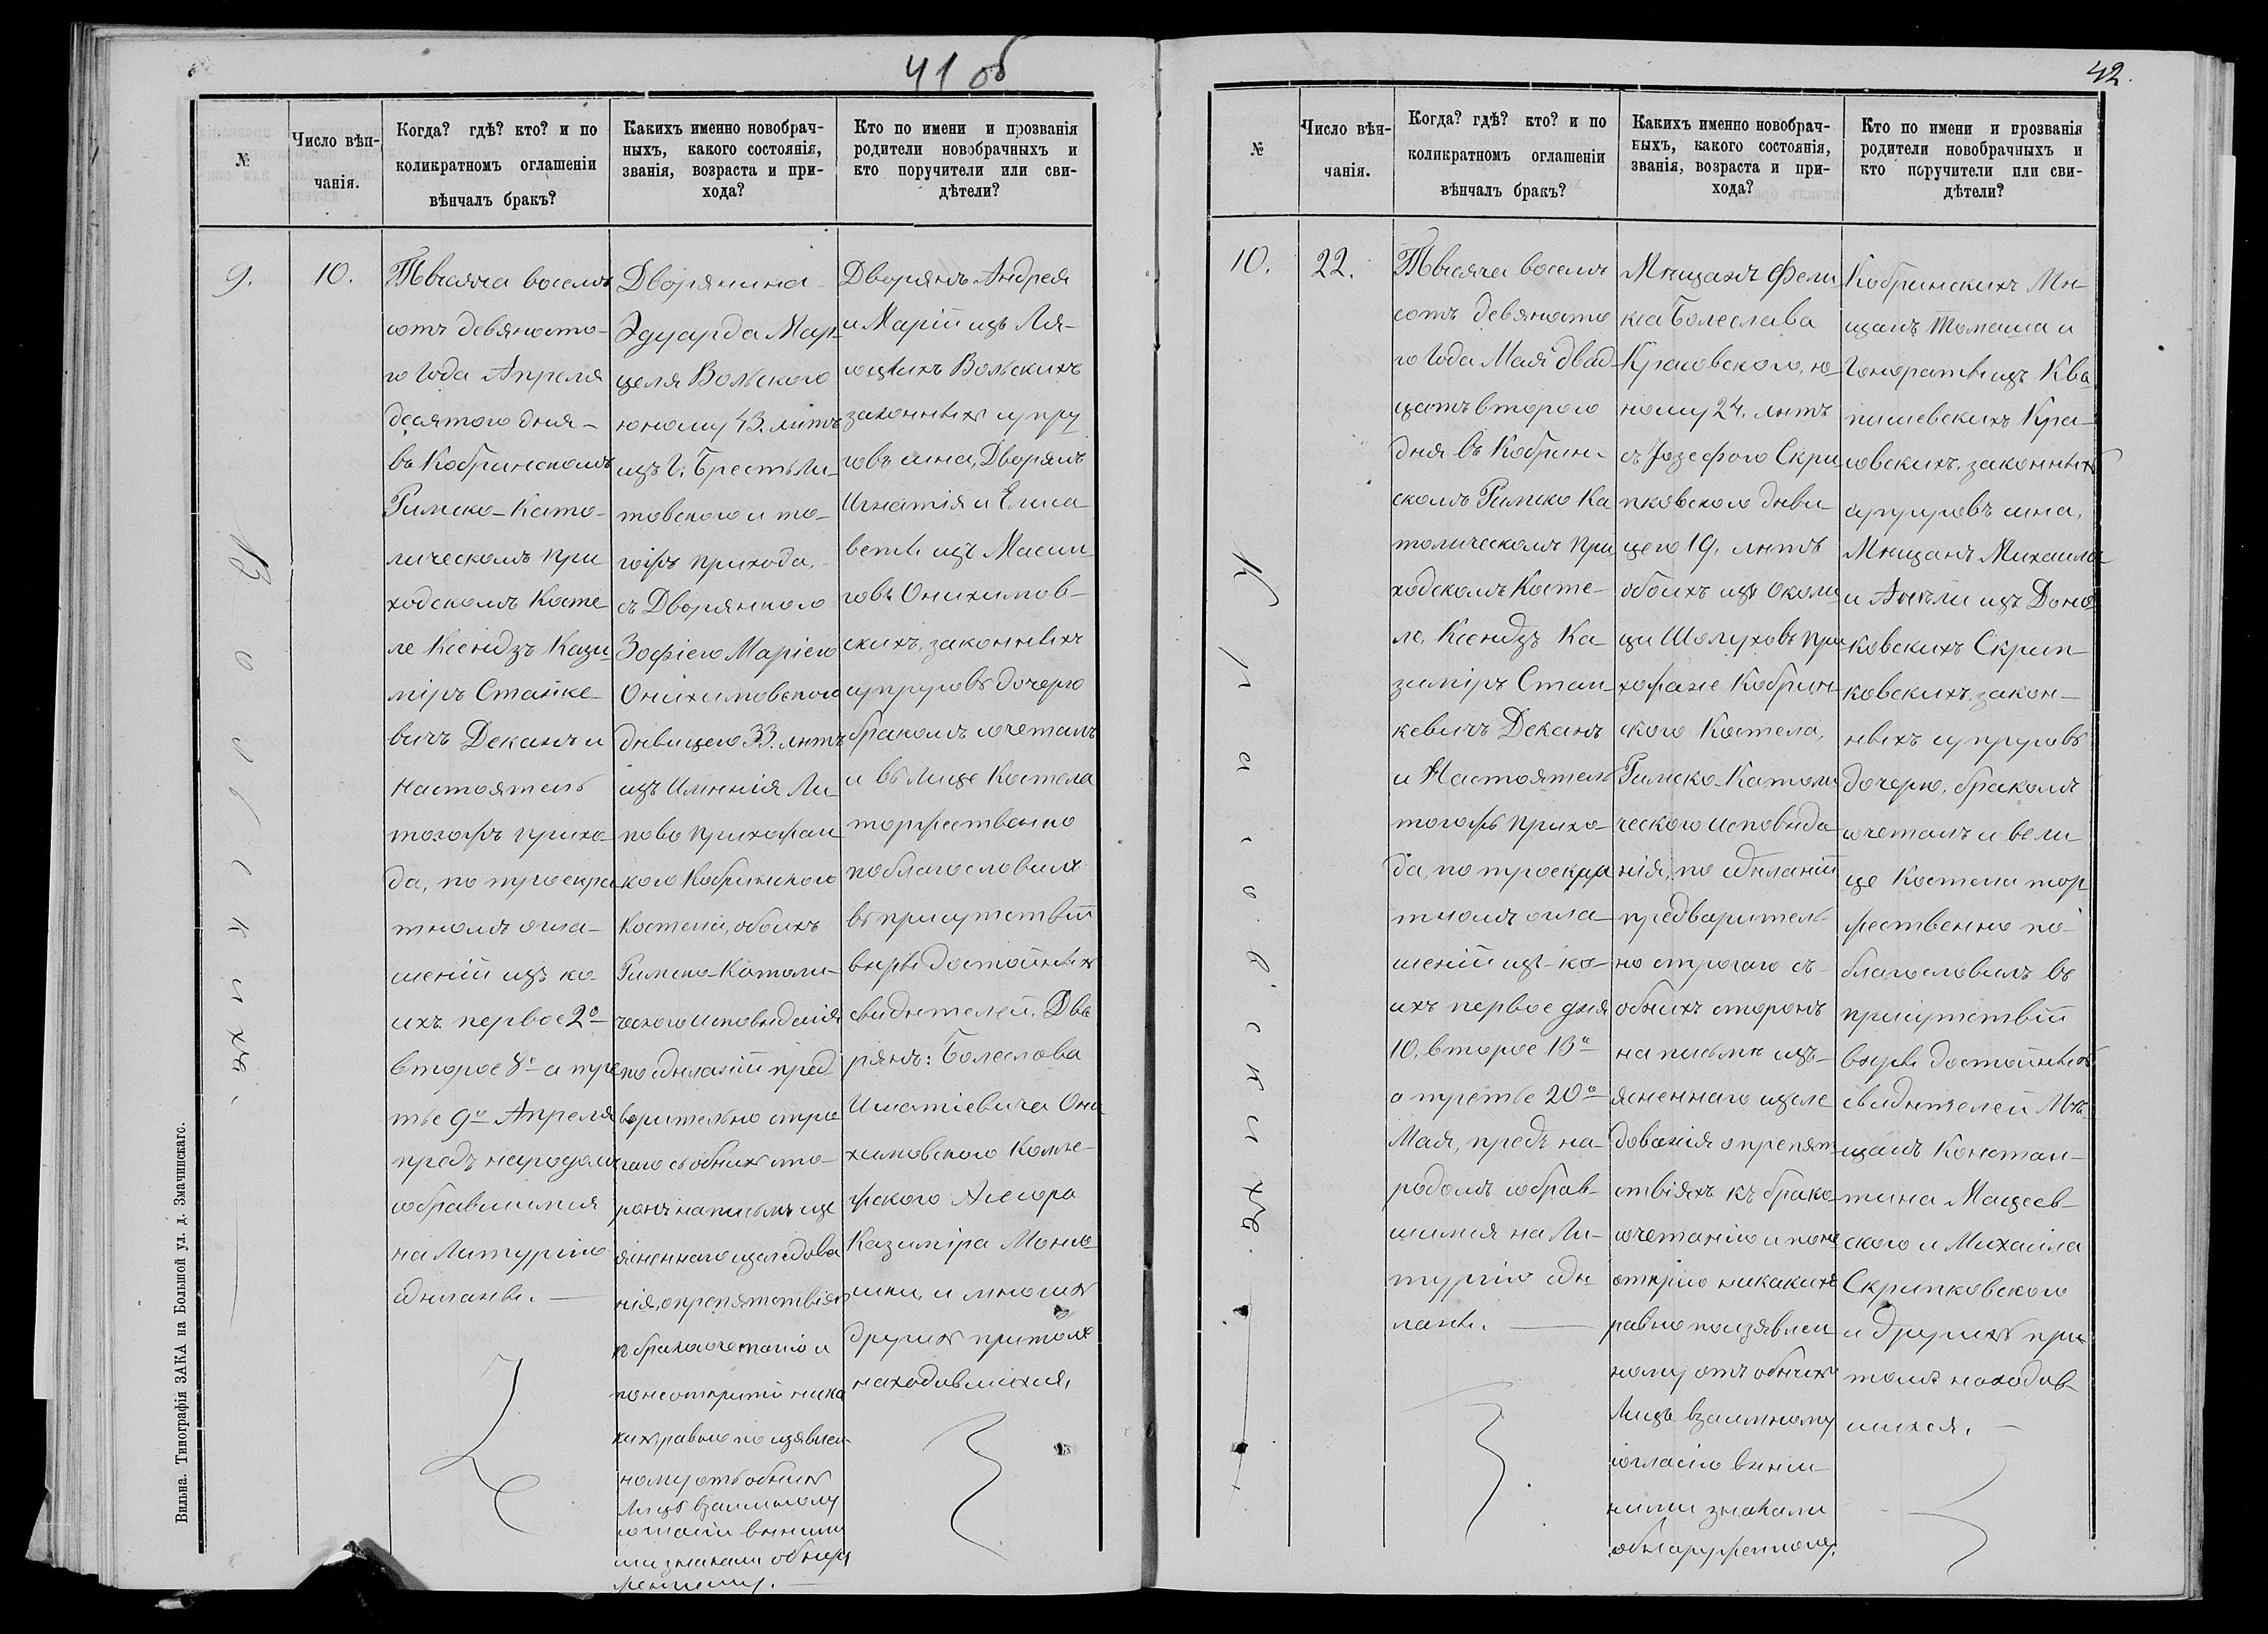 41 об
№
Число вѣн-
чанія.
Когда? гдѣ? кто? и по
коликратномъ оглашеніи
вѣнчалъ бракъ?
Какихъ именно новобрач-
ныхъ, какого состоянія,
званія, возраста и при-
хода?
Кто по имени и прозванія
родители новобрачныхъ и
кто поручители или сви-
дѣтели?
9.
Вольскихъ.
10.
Тысяча восемь
сотъ девяносто-
го Года Апреля
десятого дня –
въ Кобринскомъ
Римско-Като-
лическомъ при
ходскомъ Косте
ле Ксіндзъ Кази
міръ Станке-
вичъ Деканъ и
Настоятель
тогожъ прихо-
да, по троекра
тномъ огла-
шеніи изъ ко-
ихъ первое 2о
второе 8о а тре
тье 9о Апреля
предъ народомъ
собравшимся
на Литургію
сдѣланы. —
Дворянина
Эдуарда Мар-
целя Вольского
юному 43. лѣтъ
изъ Г. Брестъ Ли-
товского и то-
гожъ прихода,
съ Дворянкою
Зофіею Маріею
Онихимовскою
дѣвицею 33. лѣтъ
изъ Имѣнія Ли-
пово прихожан
кою Кобринского
Костела, обоихъ
Римско-Католи-
ческого исповѣданія
по сдѣланіи пред
варительно стро
гого съ обѣихъ сто-
ронъ на письмѣ изъ
ясненнаго изследова
нія, о препятствіяхъ
къ бракосочетанію и
по неоткрытіи ника
кихъ равно по изявлен-
ному отъ обѣихъ
Лицъ взаимному
согласіи внѣшни
ми знаками обнару
женному. —
Дворянъ Андрея
и Маріи изъ Ля-
соцкихъ Вольскихъ
законныхъ супру
говъ сына, Дворянъ
Игнатія и Елиса
веты изъ Масал
говъ Онихимов-
скихъ, законныхъ
супруговъ дочерю
бракомъ сочеталъ
и въ лице Костела
торжественно
поблагословилъ
въ присутствіи
вѣрыдостойныхъ
свидѣтелей, Дво
рянъ: Болеслава
Игнатіевича Они
химовского Колле-
жского Асесора
Казиміра Моню
шки, и многихъ
другихъ притомъ
находившихся,
Вильна. Типографія ЗАКА на Большой ул. д. Змачинскаго.
42.
№
Число вѣн-
чанія.
Когда? гдѣ? кто? и по
коликратномъ оглашеніи
вѣнчалъ бракъ?
Какихъ именно новобрач-
ныхъ, какого состоянія,
званія, возраста и при-
хода?
Кто по имени и прозванія
родители новобрачныхъ и
кто поручители или сви-
дѣтели?
10.
Красовскихъ.
22.
Тысяча восемь
сотъ девяносто
го Года Мая двад-
цать второго
дня въ Кобрин-
скомъ Римско Ка
толическомъ при
ходскомъ Косте-
ле, Ксендзъ Ка-
зиміръ Стан-
кевичъ Деканъ
и Настоятель
тогожъ прихо-
да, по троекра
тномъ огла-
шеніи изъ ко-
ихъ первое дня
10, второе 13о
а третье 20о
Мая, предъ на-
родомъ собрав-
шимся на Ли-
тургію сдѣ
ланы. —
Мѣщанъ Фели
кса Болеслава
Красовского, ю-
ному 24. лѣтъ
съ Юзефою Скри
пковскою дѣви-
цею 19. лѣтъ
обоихъ изъ Околи
цы Шолуховъ при
хожане Кобрин-
ского Костела,
Римско-Католи
ческого исповѣда
нія, по сдѣланіи
предваритель-
но строгаго съ-
обѣихъ сторонъ
на письмѣ изъ-
ясненнаго изсле
дованія о препят-
ствіяхъ къ брако-
сочетанію и по не
открію никакихъ
равно по изявлен
ному отъ обѣихъ
Лицъ взаимному
согласію внѣш-
ними знаками
обнаруженному.
Кобринскихъ Мѣ-
щанъ Томаша и
Гонораты изъ Ква
пишевскихъ Кра-
совскихъ, законныхъ
супруговъ сына,
Мѣщанъ Михаила
и Анѣли изъ Доно
ковскихъ Скрип-
ковскихъ, закон-
ныхъ супруговъ
дочерю, бракомъ
сочеталъ и въ ли-
це Костела тор
жественно по-
благословилъ въ
присутствіи
вѣрыдостойныхъ
свидѣтелей Мѣ-
щанъ Констан-
тина Мацеев-
ского и Михаила
Скрипковского
и другихъ при
томъ находив-
шихся. —